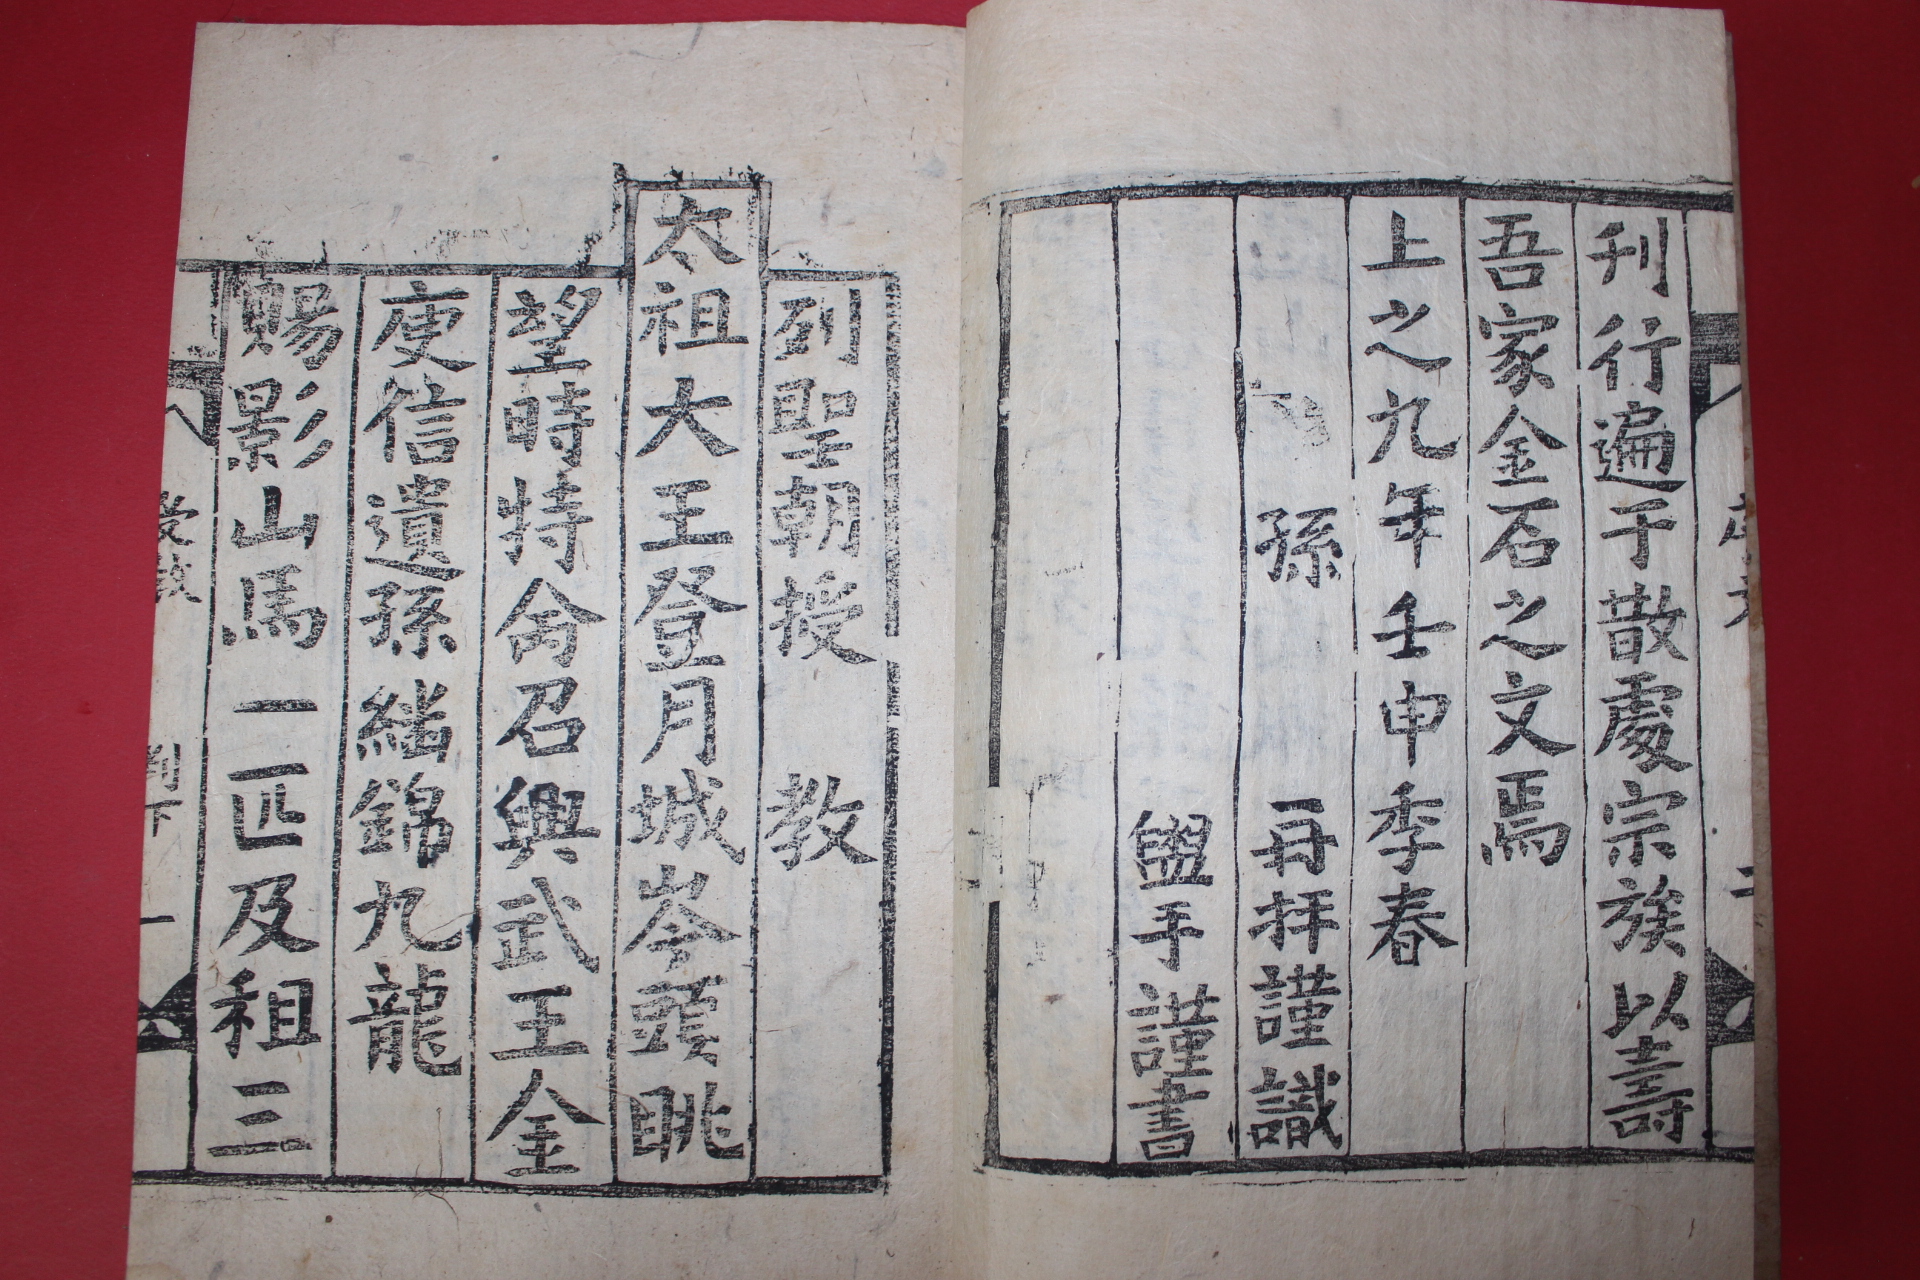 刊行遍于散處宗族以壽
吾家金石之文焉
上之九年壬申季春
孫 再拜謹識
盥手謹書
列聖朝授 教
太祖大王登月城岑頭眺
望時特命召興武王金
庾信遺孫繙錦九龍
賜影山馬一匹及租三
受教
判下
一